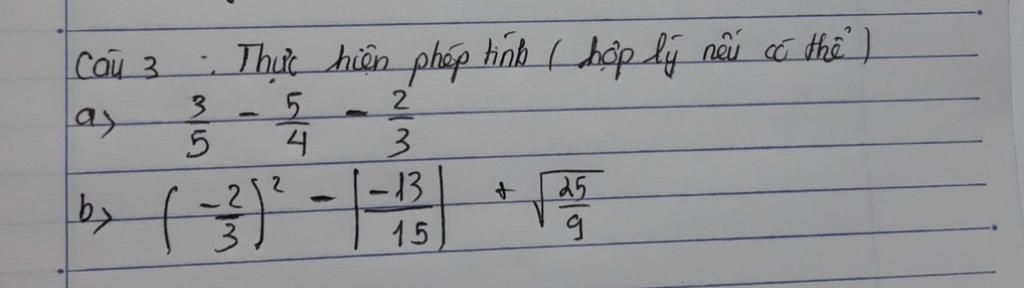 Câu 3 : Thực hiện phép tính ( hợp lý nếu có thể )
a) 3/5 - 5/4 - 2/3
b) (-2/3)² - |-13/15| + √(25/9)